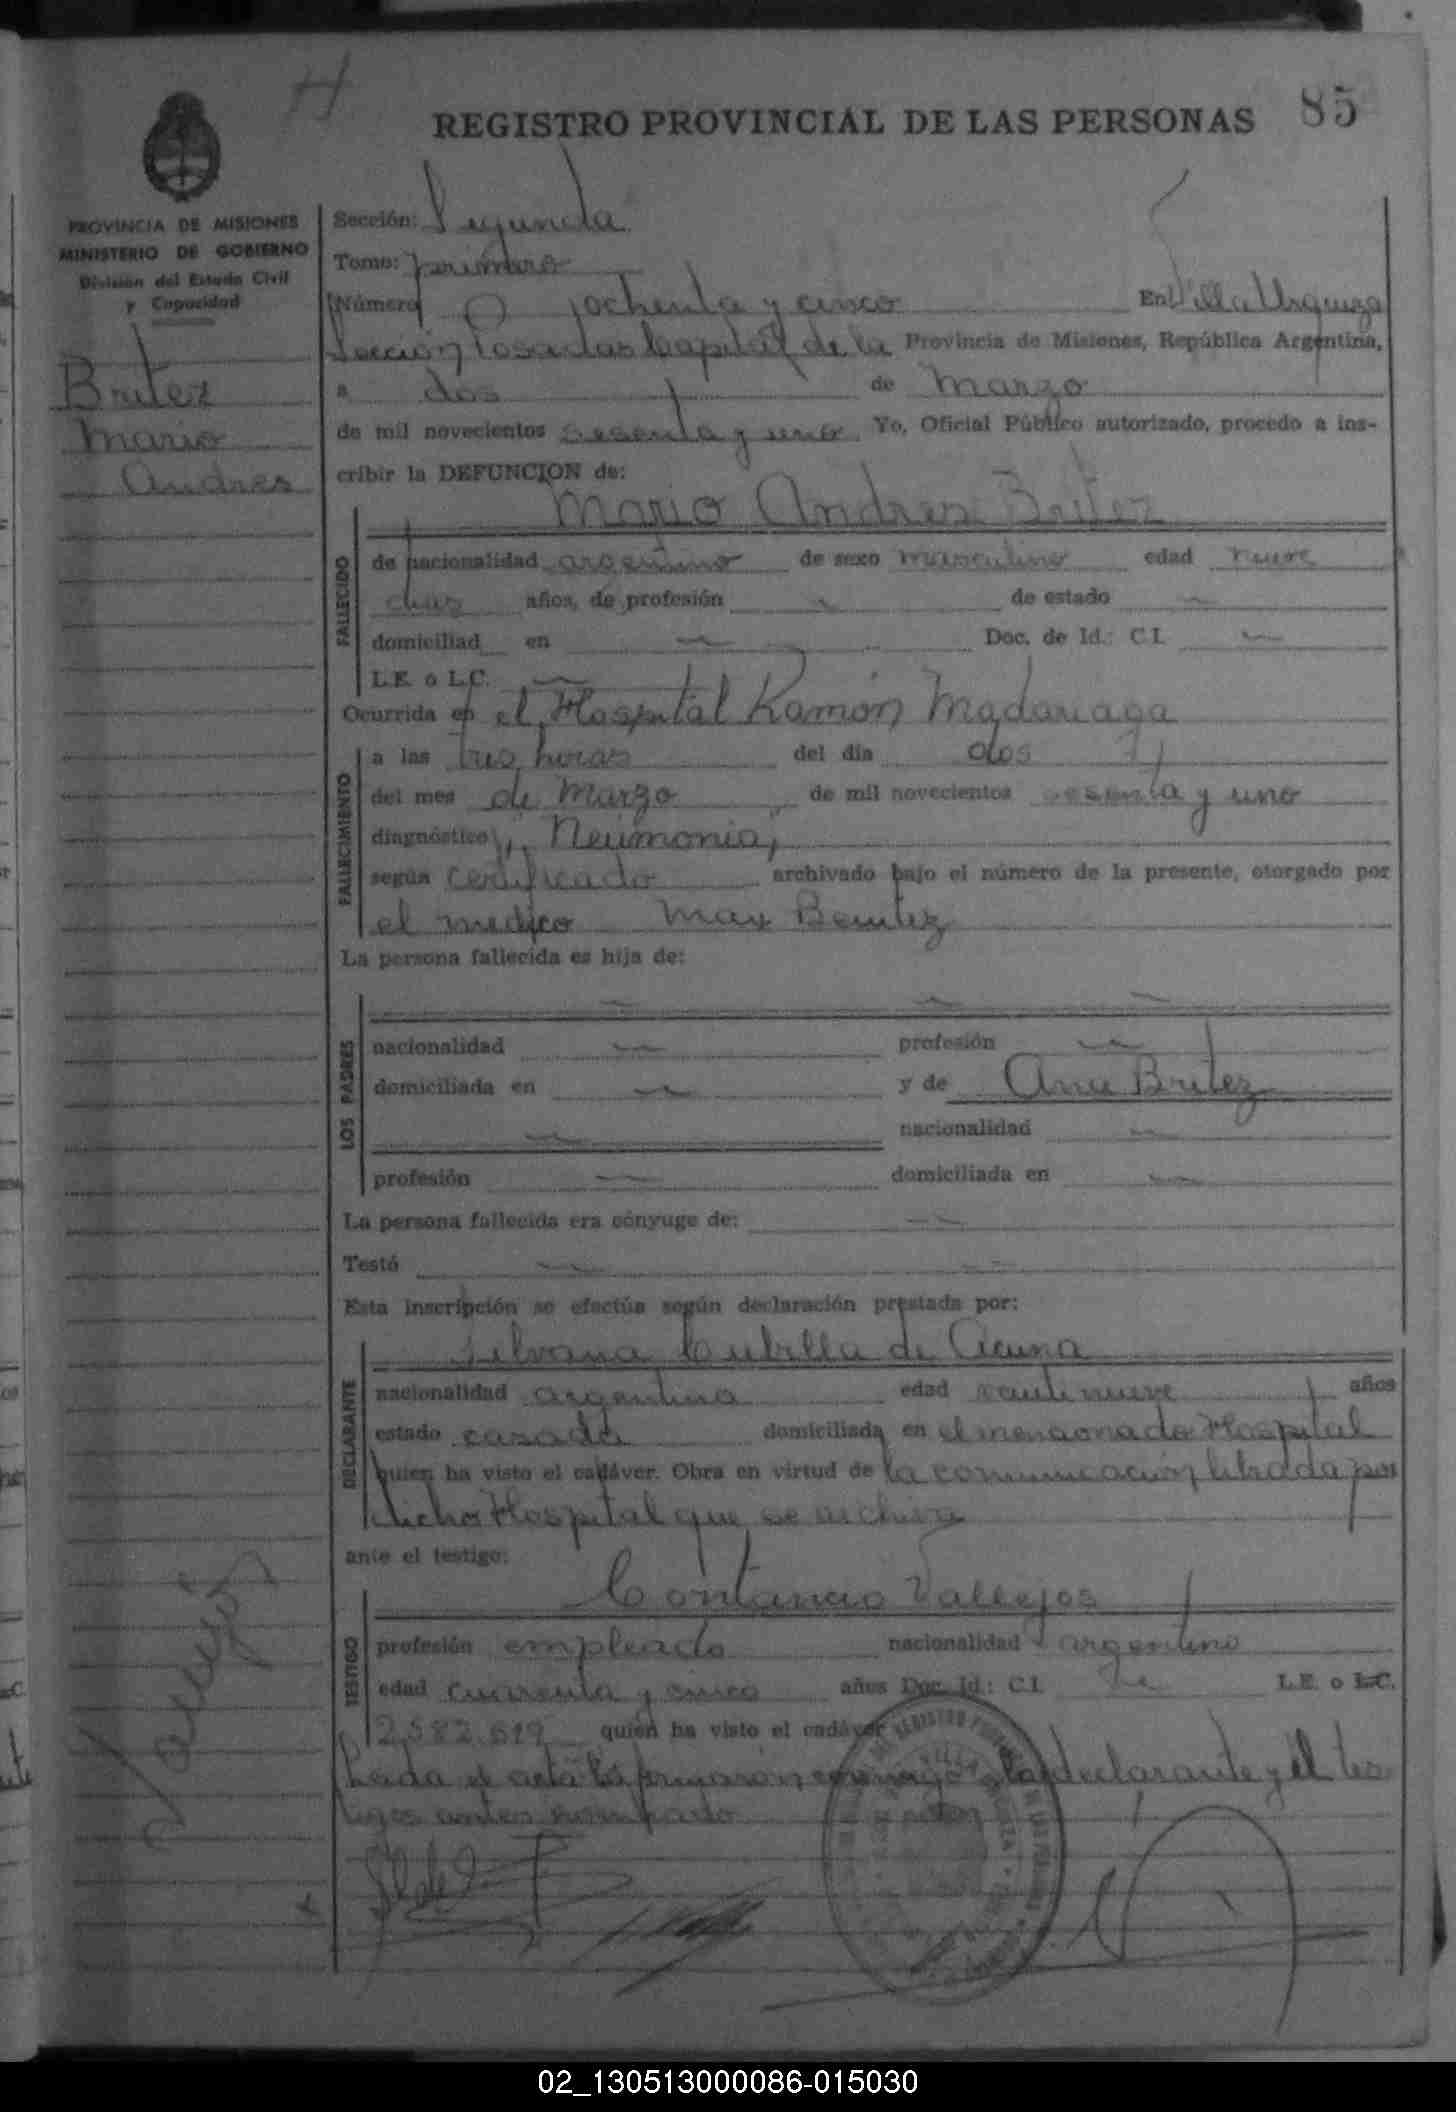 H
REGISTRO PROVINCIAL DE LAS PERSONAS 85
PROVINCIA DE MISIONES
MINISTERIO DE GOBIERNO
División del Estado Civil
y Capacidad
Britez
Mario
Andres
Sección: Segunda
Tomo: primero
Número ochenta y cinco En Villa Urquiza
Sección Posadas Capital de la Provincia de Misiones, República Argentina,
a dos de Marzo
de mil novecientos sesenta y uno Yo, Oficial Público autorizado, procedo a ins-
cribir la DEFUNCION de:
Mario Andres Britez
FALLECIDO
de nacionalidad argentino de sexo masculino edad nueve
dias años, de profesión de estado
domiciliad en Doc. de Id.: C.I.
L.E. o L.C.
Ocurrida en el Hospital Ramón Madariaga
FALLECIMIENTO
a las tres horas del día dos
del mes de Marzo de mil novecientos sesenta y uno
diagnóstico Neumonia
según certificado archivado bajo el número de la presente, otorgado por
el medico Max Benitez
La persona fallecida es hija de:
LOS PADRES
nacionalidad profesión
domiciliada en y de Ana Britez
nacionalidad
profesión domiciliada en
La persona fallecida era cónyuge de:
Testó
Esta inscripción se efectúa según declaración prestada por:
Silvana Cubilla de Acuna
DECLARANTE
nacionalidad argentina edad veintinueve años
estado casada domiciliada en el mencionado Hospital
quien ha visto el cadáver. Obra en virtud de la comunicación librada por
dicho Hospital que se archiva
ante el testigo:
Contancio Vallejos
TESTIGO
profesión empleado nacionalidad argentino
edad cuarenta y cinco años Doc. Id.: C.I. L.E. o L.C.
2.582.619 quien ha visto el cadáver
el acta la declarante y el tes
tigos antes nombrado
02_130513000086-015030